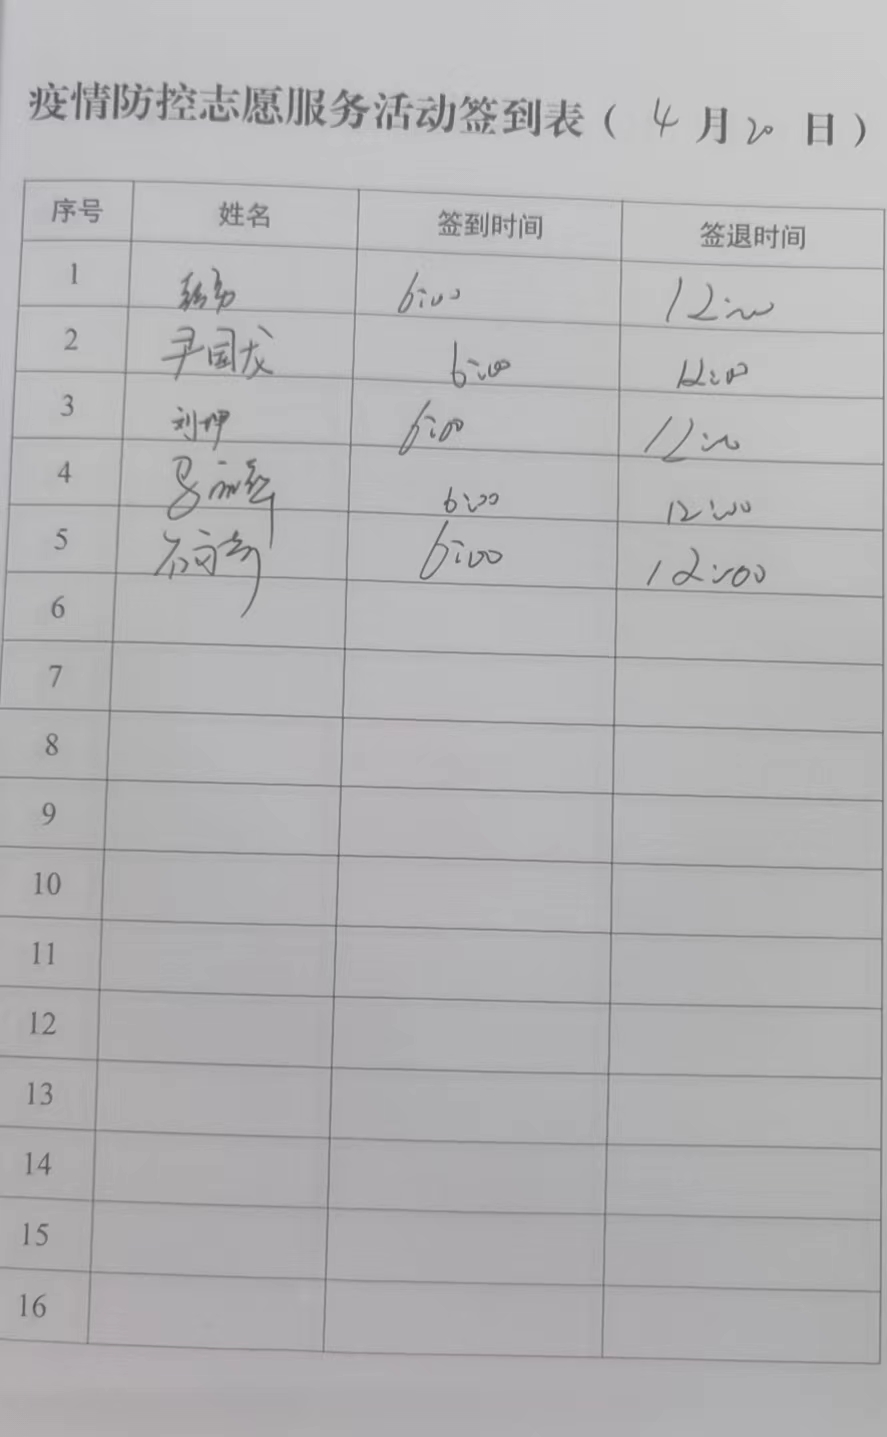 疫情防控志愿服务活动签到表（ 4 月 20 日）
序号 姓名 签到时间 签退时间
1 6:00 12:00
2 尹国龙 6:00 12:00
3 刘坤 6:00 12:00
4 6:00 12:00
5 6:00 12:00
6
7
8
9
10
11
12
13
14
15
16